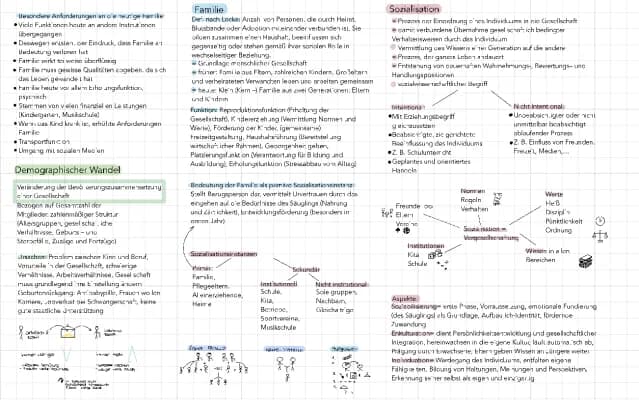 Besondere Anforderungen an die heutige Familie
Viele Funktionen heute an andere Instanzen
übergegangen
Deswegen entsteht der Eindruck, dass Familie an
Bedeutung verloren hat
Familie wirkt so weise überflüssig
Familie heute vor allem Erholungsfunktion,
psychisch
Stemmen von vielen finanziellen Leistungen
(Kindergarten, Musikschule)
Wenn das Kind krank ist, erhöhte Anforderungen
Familie
Transportfunktion
Umgang mit sozialen Medien
Demographischer Wandel
Veränderung der Bevölkerungszusammensetzung
einer Gesellschaft
Bezogen auf Gesamtzahl der
Mitglieder, zahlenmäßiger Struktur
(Altersgruppen, geschlechtliche
Verhältnisse, Geburten- und
Sterbefälle, Zuzüge und Fortzüge)
Ursachen: Problem zwischen Kind und Beruf,
Vorurteile in der Gesellschaft, schwierige
Verhältnisse, Arbeitsverhältnisse, Gesellschaft
muss grundlegend ihre Einstellung ändern
Geburtenrückgang: Antibabypille, Frauen wollen
Karriere, Jobverlust bei Schwangerschaft, keine
gute staatliche Unterstützung
Familie
Def. nach Locke: Anzahl von Personen, die durch Heirat,
Blutsbande oder Adoption miteinander verbunden ist. Sie
bilden zusammen einen Haushalt, beeinflussen sich
gegenseitig oder stehen gemäß ihrer sozialen Rolle in
wechselseitiger Beziehung.
Grundlage menschlicher Gesellschaft
früher: Familie aus Eltern, zahlreichen Kindern, Großeltern
und verheirateten Verwandten leben und arbeiten gemeinsam
heute: Klein (Kern-) Familie aus zwei Generationen: Eltern
und Kindern
Funktion: Reproduktionsfunktion (Erhaltung der
Gesellschaft), Kindererziehung (Vermittlung Normen und
Werte), Förderung der Kinder, (gemeinsame)
Freizeitgestaltung, Haushaltsführung (Bereitstellung
wirtschaftlicher Rahmen), Geborgenheit geben,
Platzierungsfunktion (Verantwortung für Bildung und
Ausbildung), Erholungsfunktion (Stressabbau vom Alltag)
Bedeutung der Familie als primäre Sozialisationsinstanz:
Stellt Bezugsperson dar, vermittelt Urvertrauen durch das
eingehen auf die Bedürfnisse des Säuglings (Nahrung
und Zärtlichkeit), Entwicklungsförderung (besonders in
ersten Jahr)
Sozialisationsinstanzen
Primär:
Familie,
Pflegeeltern,
Alleinerziehende,
Heime
Sekundär
Institutionell
Schule,
Kita,
Betriebe,
Sportvereine,
Musikschule
Nicht institutionell:
Spielgruppen,
Nachbarn,
Gleichaltrige
Sozialisation
Prozess der Einordnung eines Individuums in die Gesellschaft
damit verbundene Übernahme gesellschaftlich bedingter
Verhaltensweisen durch das Individuum
Vermittlung des Wissens einer Generation auf die andere
Prozess, der ganzes Leben andauert
Entstehung von dauerhaften Wahrnehmungs-, Bewertungs- und
Handlungspositionen
sozialwissenschaftlicher Begriff
Intentional:
Mit Erziehungsbegriff
gleichzusetzen
Beabsichtigte, zielgerichtete
Beeinflussung des Individuums
Z. B. Schulunterricht
Geplantes und orientiertes
Handeln
Nicht intentional:
Unbeabsichtigter oder nicht
unmittelbar beabsichtigt
ablaufender Prozess
Z. B. Einfluss von Freunden,
Freizeit, Medien,...
Freunde
Eltern
Vereine
Normen
Regeln
Verhalten
Werte
Fleiß
Disziplin
Pünktlichkeit
Ordnung
Sozialisation =
Vergesellschaftung
Institutionen
Kita
Schule
Wissen in allen
Bereichen
Aspekte:
Soziabilisierung= erste Phase, Voraussetzung, emotionale Fundierung
(des Säuglings) als Grundlage, Aufbau Ich-Identität, fördernde
Zuwendung
Enkulturation= dient Persönlichkeitsentwicklung und gesellschaftlicher
Integration, hereinwachsen in die eigene Kultur, läuft automatisch ab,
Prägung durch Erwachsene, Eltern geben Wissen an Jüngere weiter
Individuation= Werdegang des Individuums, entfalten eigene
Fähigkeiten, Bildung von Haltungen, Meinungen und Perspektiven,
Erkennung seiner selbst als eigen und einzigartig